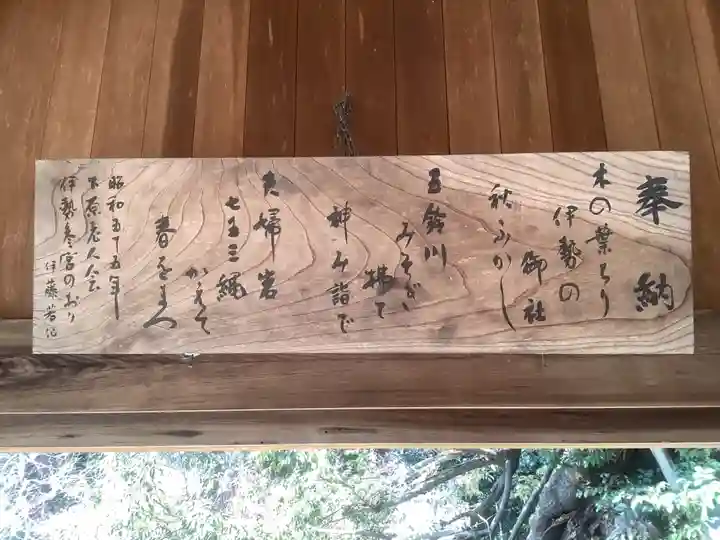 奉納
木の葉ちり
伊勢の
御社
秋ふかし
五鈴川
みそぎ
拂て
神み詣で
夫婦岩
七五三縄
かえて
春をまつ
昭和五十五年
原老人会
伊勢参宮のおり
伊藤